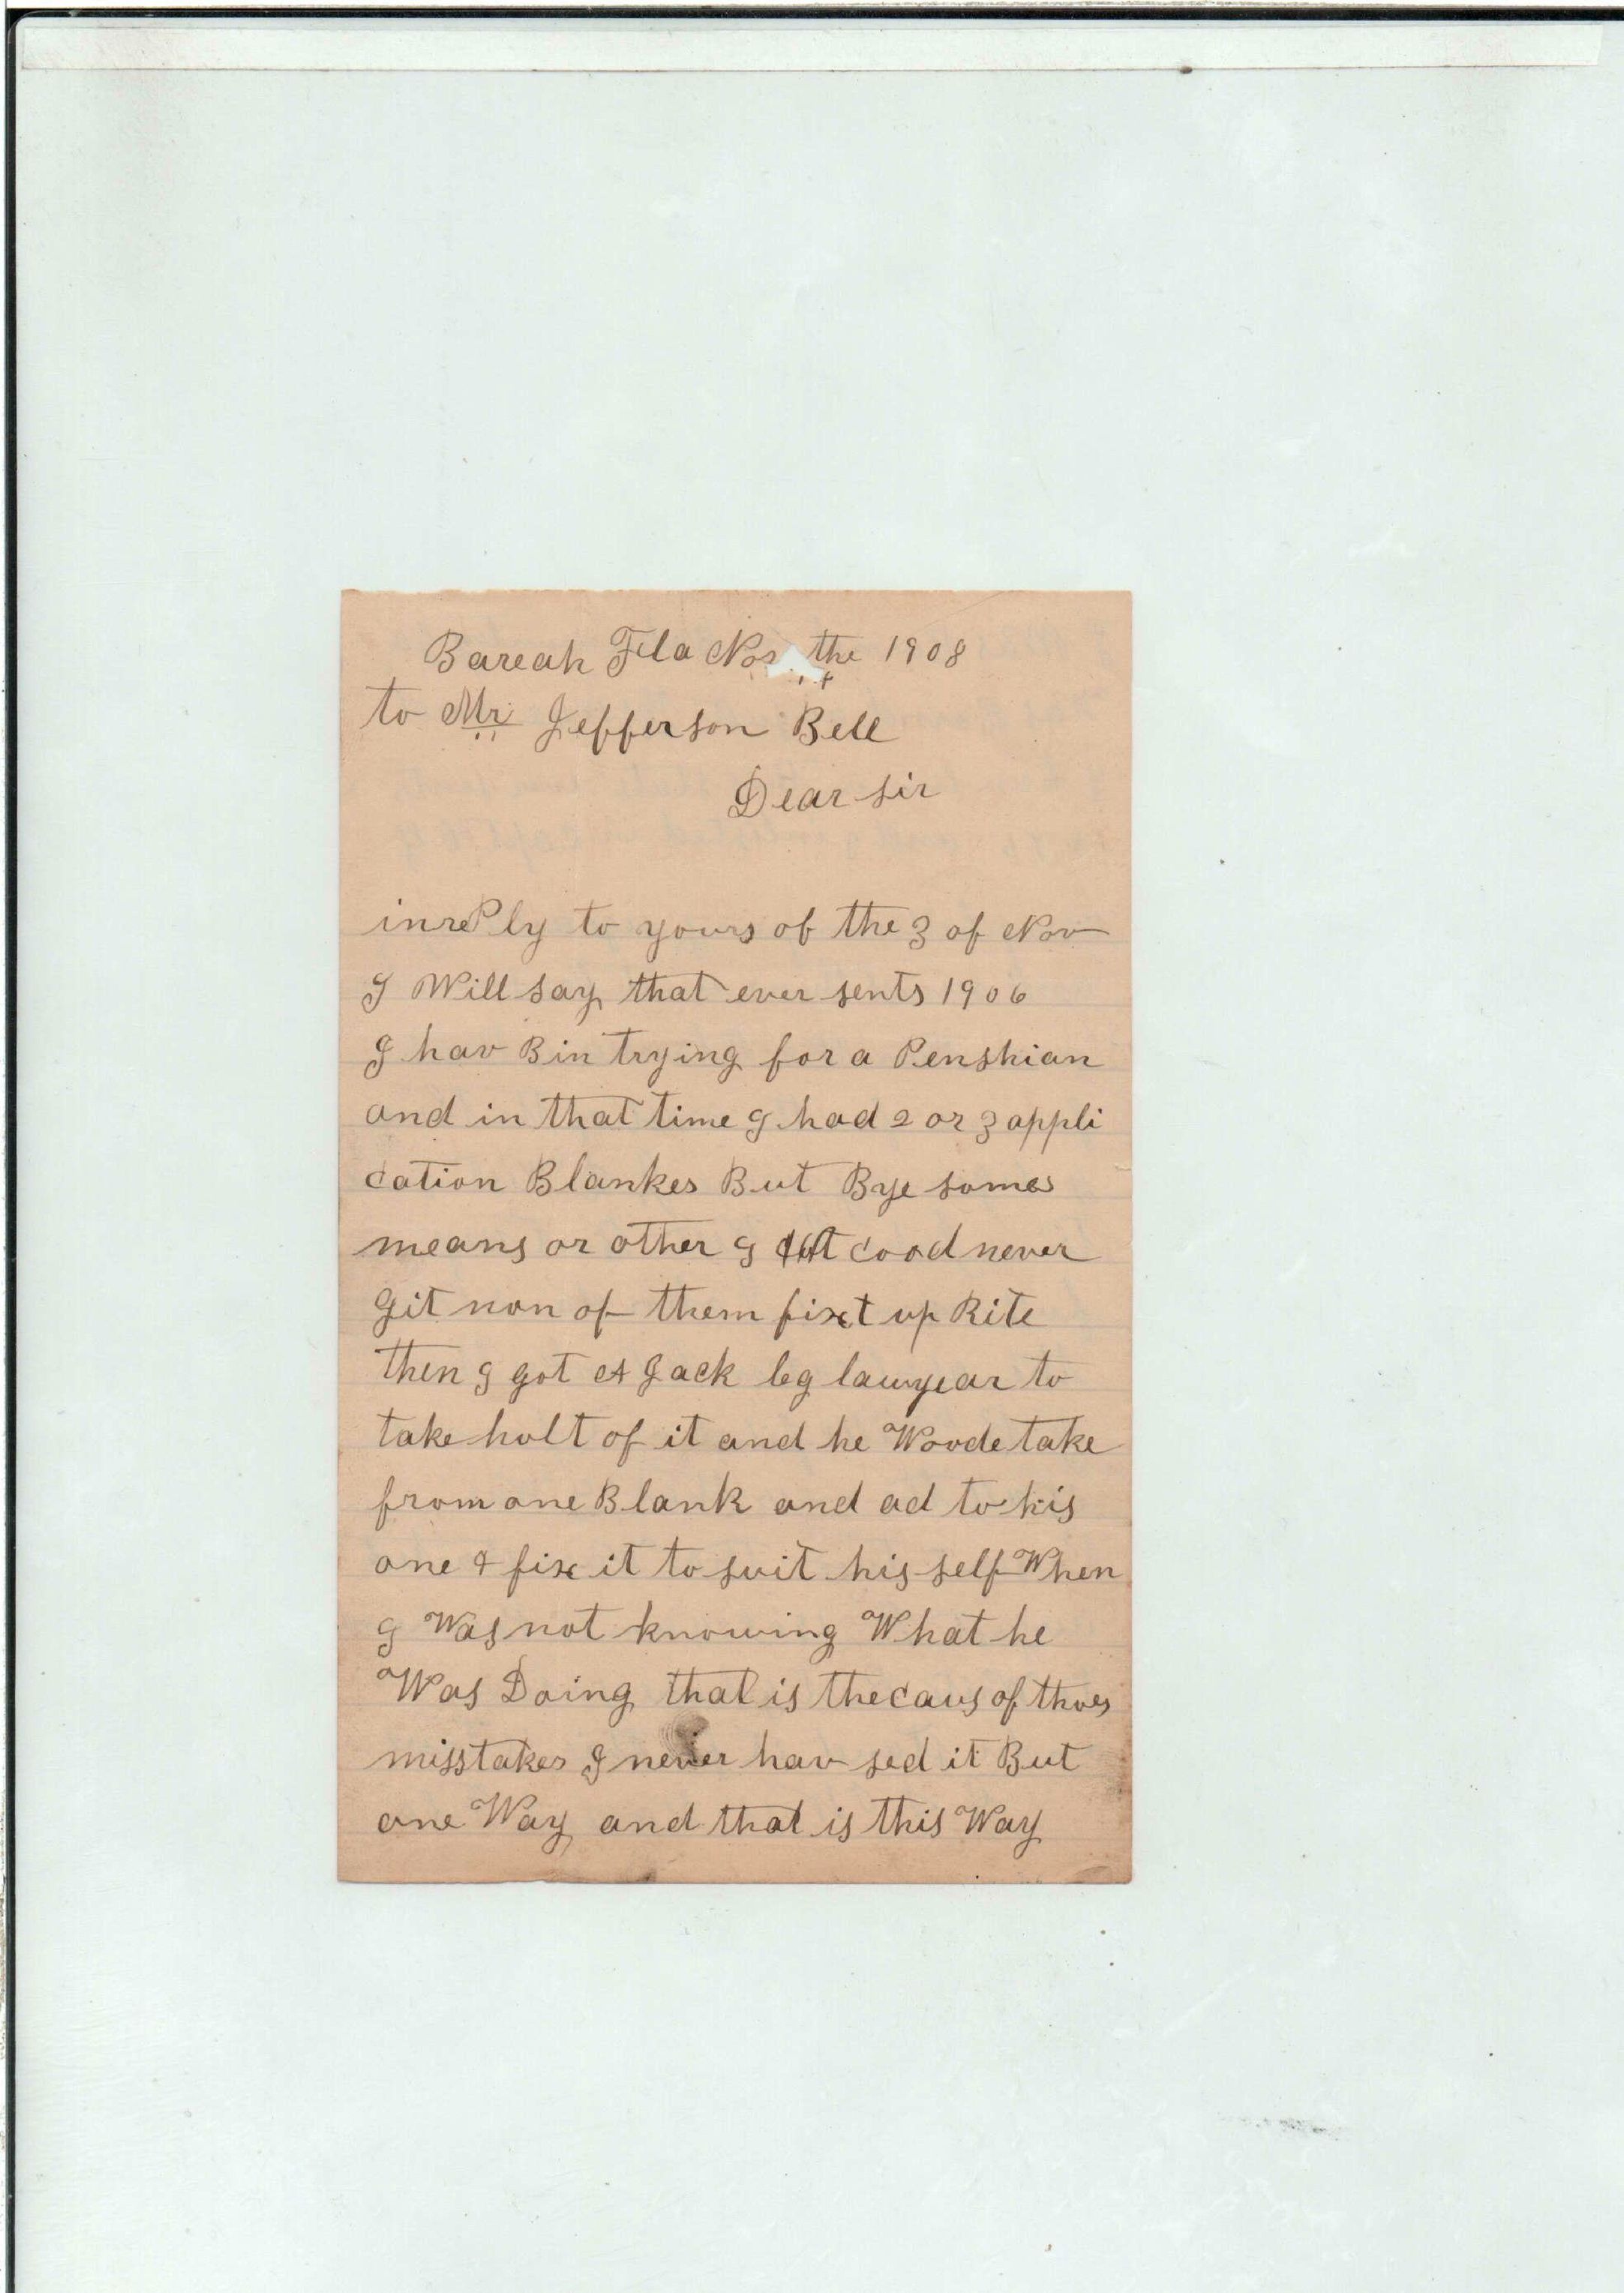 Bareah Fla Nov the 1908
to Mr Jefferson Bell
Dear sir
inrePly to yours of the 3 of Nov
I Will say that ever sents 1906
I hav Bin trying for a Penshian
and in that time I had 2 or 3 appli
cation Blankes But Bye somes
means or other I cood never
git non of them fixt up Rite
then I got A Jack leg lawyear to
take holt of it and he Woode take
from one Blank and ad to his
one & fix it to suit his self When
I Was not knowing What he
Was Doing that is the caus of thoes
misstakes I never hav sed it But
one Way and that is this Way